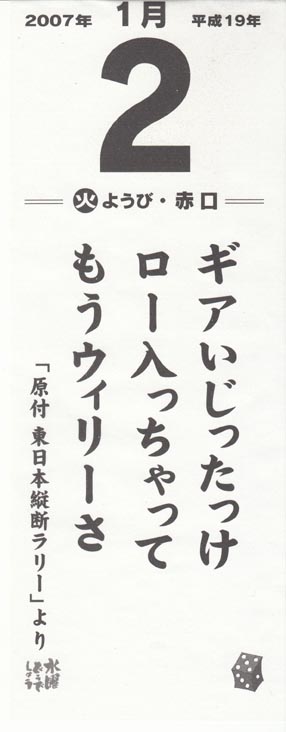 2007年 1月 平成19年
2
火ようび・赤口
ギアいじったっけ
ロー入っちゃって
もうウィリーさ
「原付 東日本縦断ラリー」より
水曜
どうで
しょう